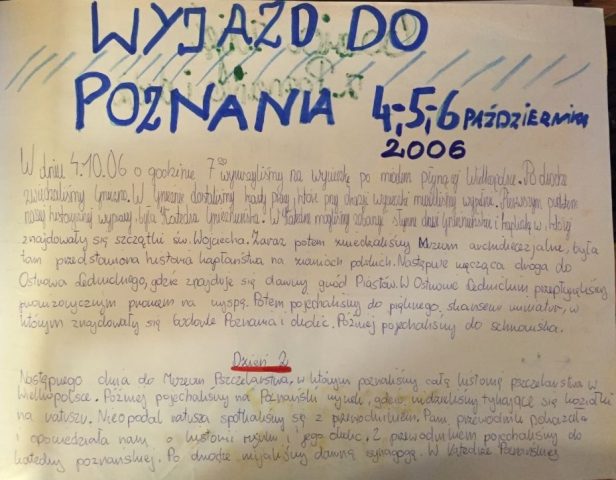 WYJAZD DO
POZNANIA 4,-5,-6 PAŹDZIERNIKA
2006
W dniu 4.10.06 o godzinie 7⁰⁰ wyruszyliśmy na wycieczkę po Wielkopolsce. Po drodze
zwiedzaliśmy Gniezno. W Gnieźnie dostaliśmy karty pracy, które przy okazji wycieczki musieliśmy wypełnić. Pierwszym punktem
naszej historycznej wyprawy była Katedra Gnieźnieńska. W Katedrze mogliśmy zobaczyć słynne drzwi Gnieźnieńskie i kapliczkę w której
znajdowały się szczątki św. Wojciecha. Zaraz potem zwiedzaliśmy Muzeum archidiecezjalne, była
tam przedstawiona historia kapłaństwa na ziemiach polskich. Następnie męcząca droga do
Ostrowa Lednickiego, gdzie znajduje się dawny gród Piastów. W Ostrowie Lednickim przepłynęliśmy
prowizorycznym promem na wyspę. Potem pojechaliśmy do pięknego, skansenu miniatur, w
którym znajdowały się budowle Poznania i okolic. Później pojechaliśmy do schroniska.
Dzień 2
Następnego dnia do Muzeum Pszczelarstwa, w którym poznaliśmy całą historię pszczelarstwa w
Wielkopolsce. Później pojechaliśmy na Poznański rynek, gdzie widzieliśmy trykające się koziołki
na ratuszu. Nieopodal ratusza spotkaliśmy się z przewodnikiem. Pani przewodnik pokazała
i opowiedziała nam o historii rynku i jego okolic. Z przewodnikiem pojechaliśmy do
katedry poznańskiej. Po drodze mijaliśmy dawną synagogę. W Katedrze Poznańskiej